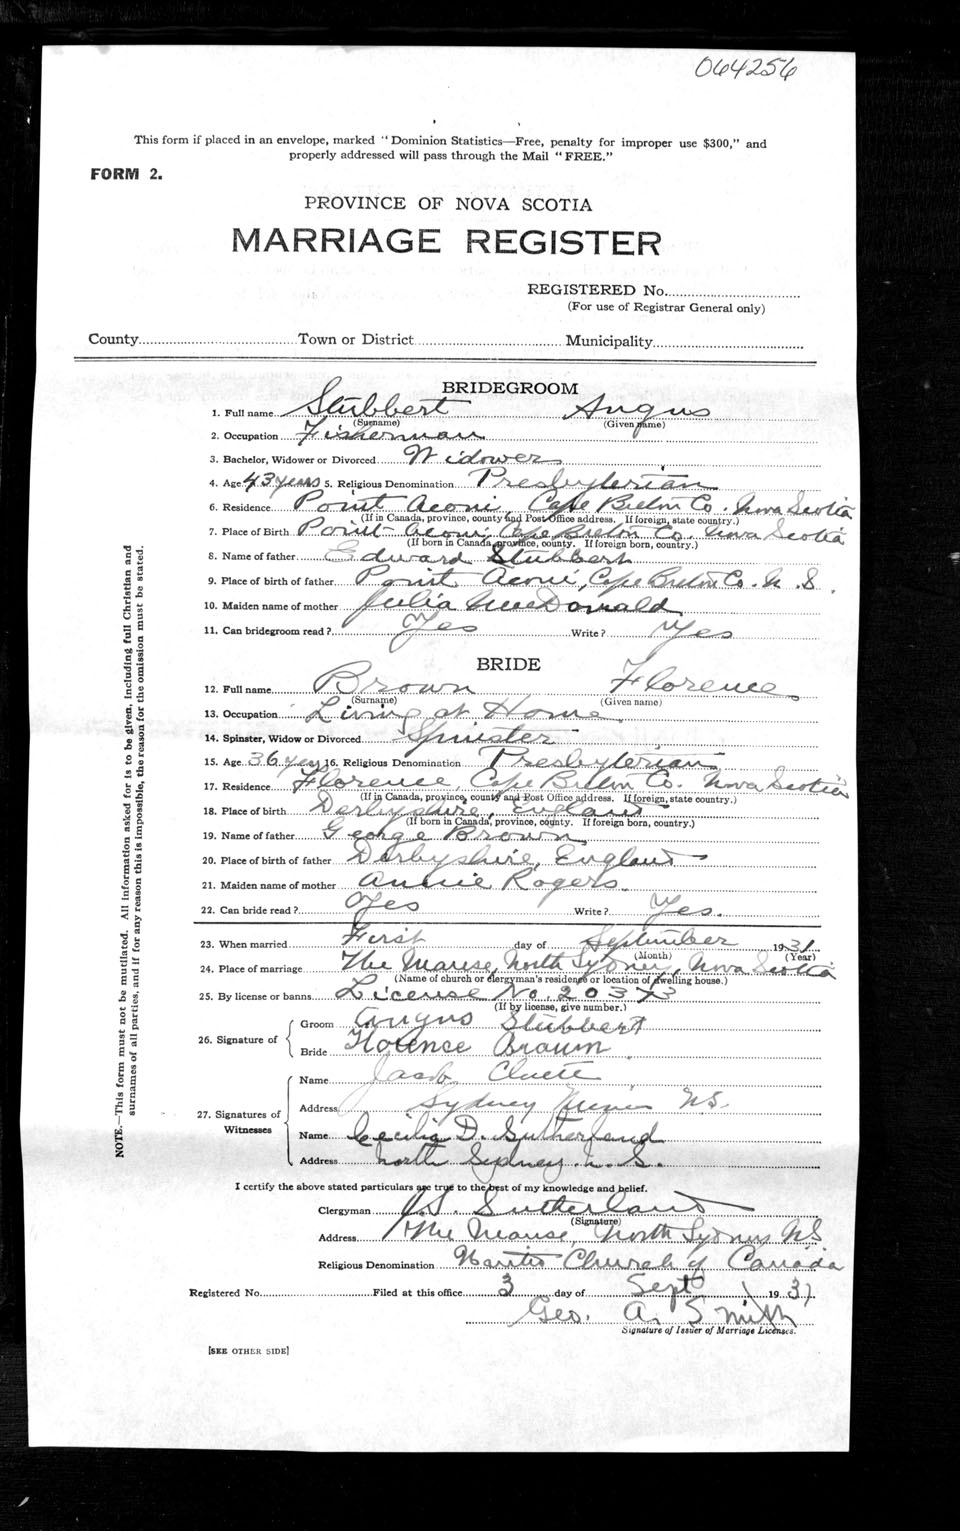 064256
This form if placed in an envelope, marked "Dominion Statistics—Free, penalty for improper use $300," and
properly addressed will pass through the Mail "FREE."
FORM 2.
PROVINCE OF NOVA SCOTIA
MARRIAGE REGISTER
REGISTERED No.
(For use of Registrar General only)
County Town or District Municipality
BRIDEGROOM
1. Full name Stubbert Angus
(Surname) (Given name)
2. Occupation Fisherman
3. Bachelor, Widower or Divorced Widower
4. Age 43 years 5. Religious Denomination Presbyterian
6. Residence Point Aconi, Cape Breton Co. Nova Scotia
(If in Canada, province, county and Post Office address. If foreign, state country.)
7. Place of Birth Point Aconi, Cape Breton Co. Nova Scotia
(If born in Canada, province, county. If foreign born, country.)
8. Name of father Edward Stubbert
9. Place of birth of father Point Aconi, Cape Breton Co. N.S.
10. Maiden name of mother Julia MacDonald
11. Can bridegroom read? Yes Write? Yes
BRIDE
12. Full name Brown Florence
(Surname) (Given name)
13. Occupation Living at Home
14. Spinster, Widow or Divorced Spinster
15. Age 36 years 16. Religious Denomination Presbyterian
17. Residence Florence, Cape Breton Co. Nova Scotia
(If in Canada, province, county and Post Office address. If foreign, state country.)
18. Place of birth Derbyshire, England
(If born in Canada, province, county. If foreign born, country.)
19. Name of father George Brown
20. Place of birth of father Derbyshire, England
21. Maiden name of mother Annie Rogers
22. Can bride read? Yes Write? Yes.
23. When married First day of September 1931
(Month) (Year)
24. Place of marriage The Manse, North Sydney, Nova Scotia
(Name of church or clergyman's residence or location of dwelling house.)
25. By license or banns License No. 20373
(If by license, give number.)
26. Signature of
Groom Angus Stubbert
Bride Florence Brown
27. Signatures of Witnesses
Name Jacob Cluett
Address Sydney Mines N.S.
Name Cecilia D. Sutherland
Address North Sydney N.S.
I certify the above stated particulars are true to the best of my knowledge and belief.
Clergyman Sutherland
(Signature)
Address The Manse, North Sydney NS
Religious Denomination United Church of Canada
Registered No. Filed at this office 3 day of Sept 1931
Geo. A. Smith
Signature of Issuer of Marriage Licenses.
[SEE OTHER SIDE]
NOTE.—This form must not be mutilated. All information asked for is to be given, including full Christian and
surnames of all parties, and if for any reason this is impossible, the reason for the omission must be stated.